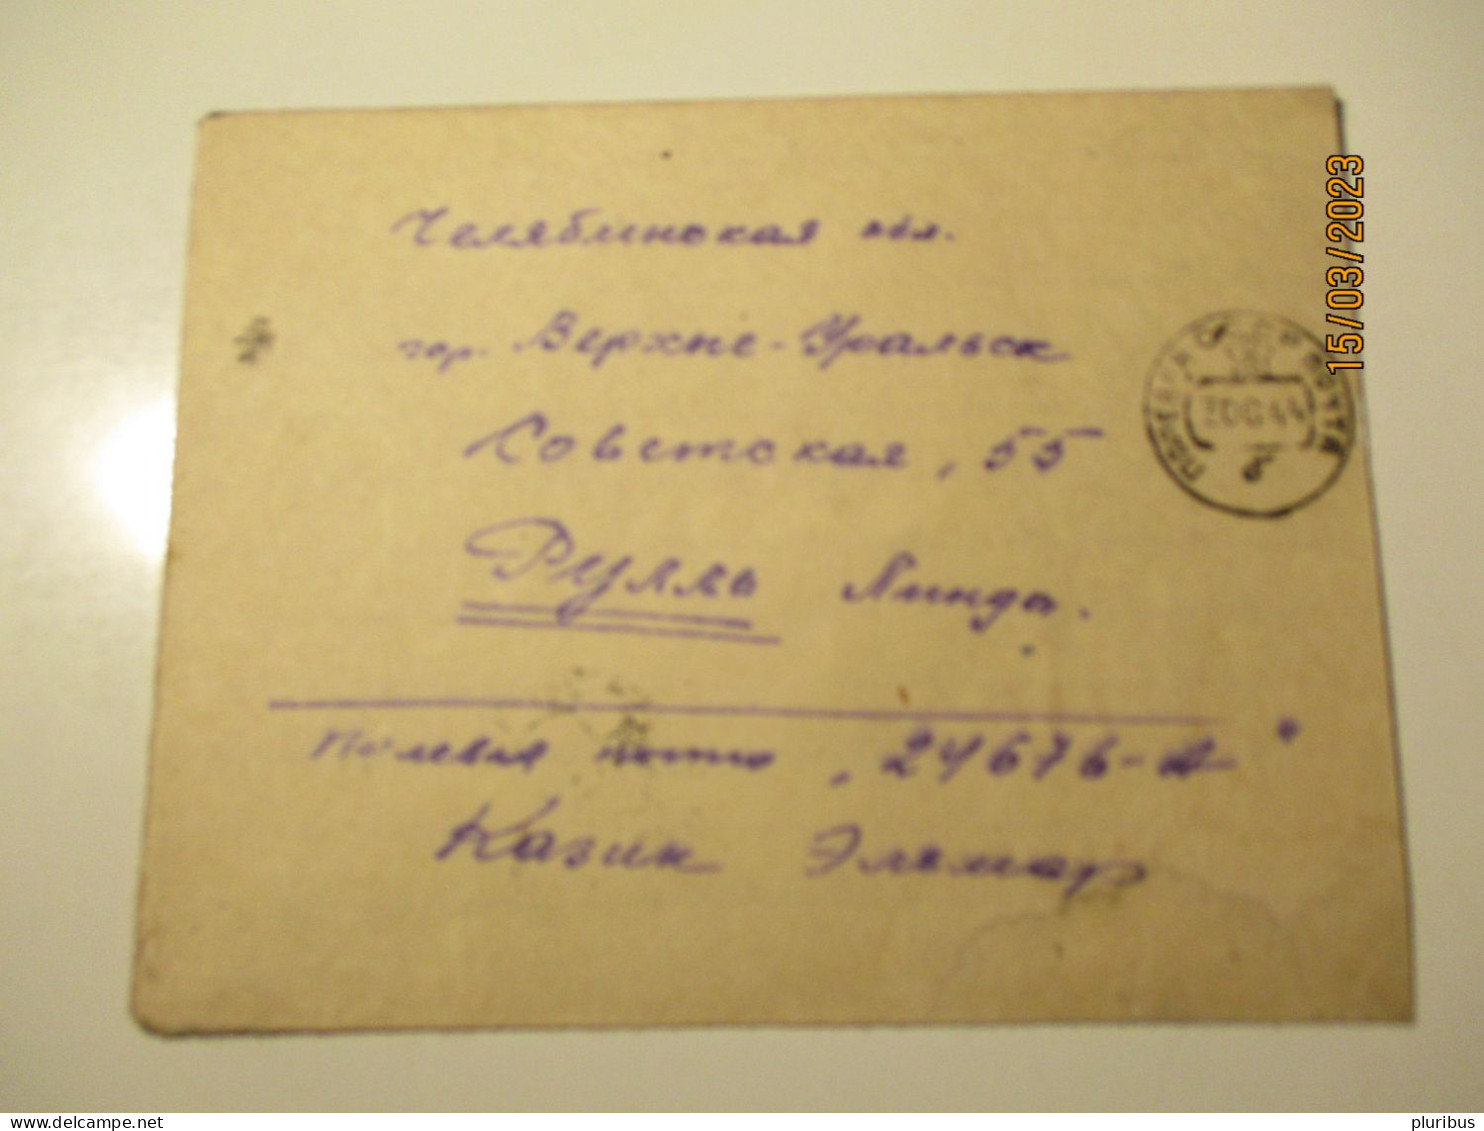 Челябинская обл.
гор. Верхне-Уральск
Советская, 55
Рулль Линда.
Полевая почта, 24676-А
Казик Элемар
ПОЛЕВАЯ ПОЧТА
44
б
15/03/2023
www.delcampe.net
pluribus